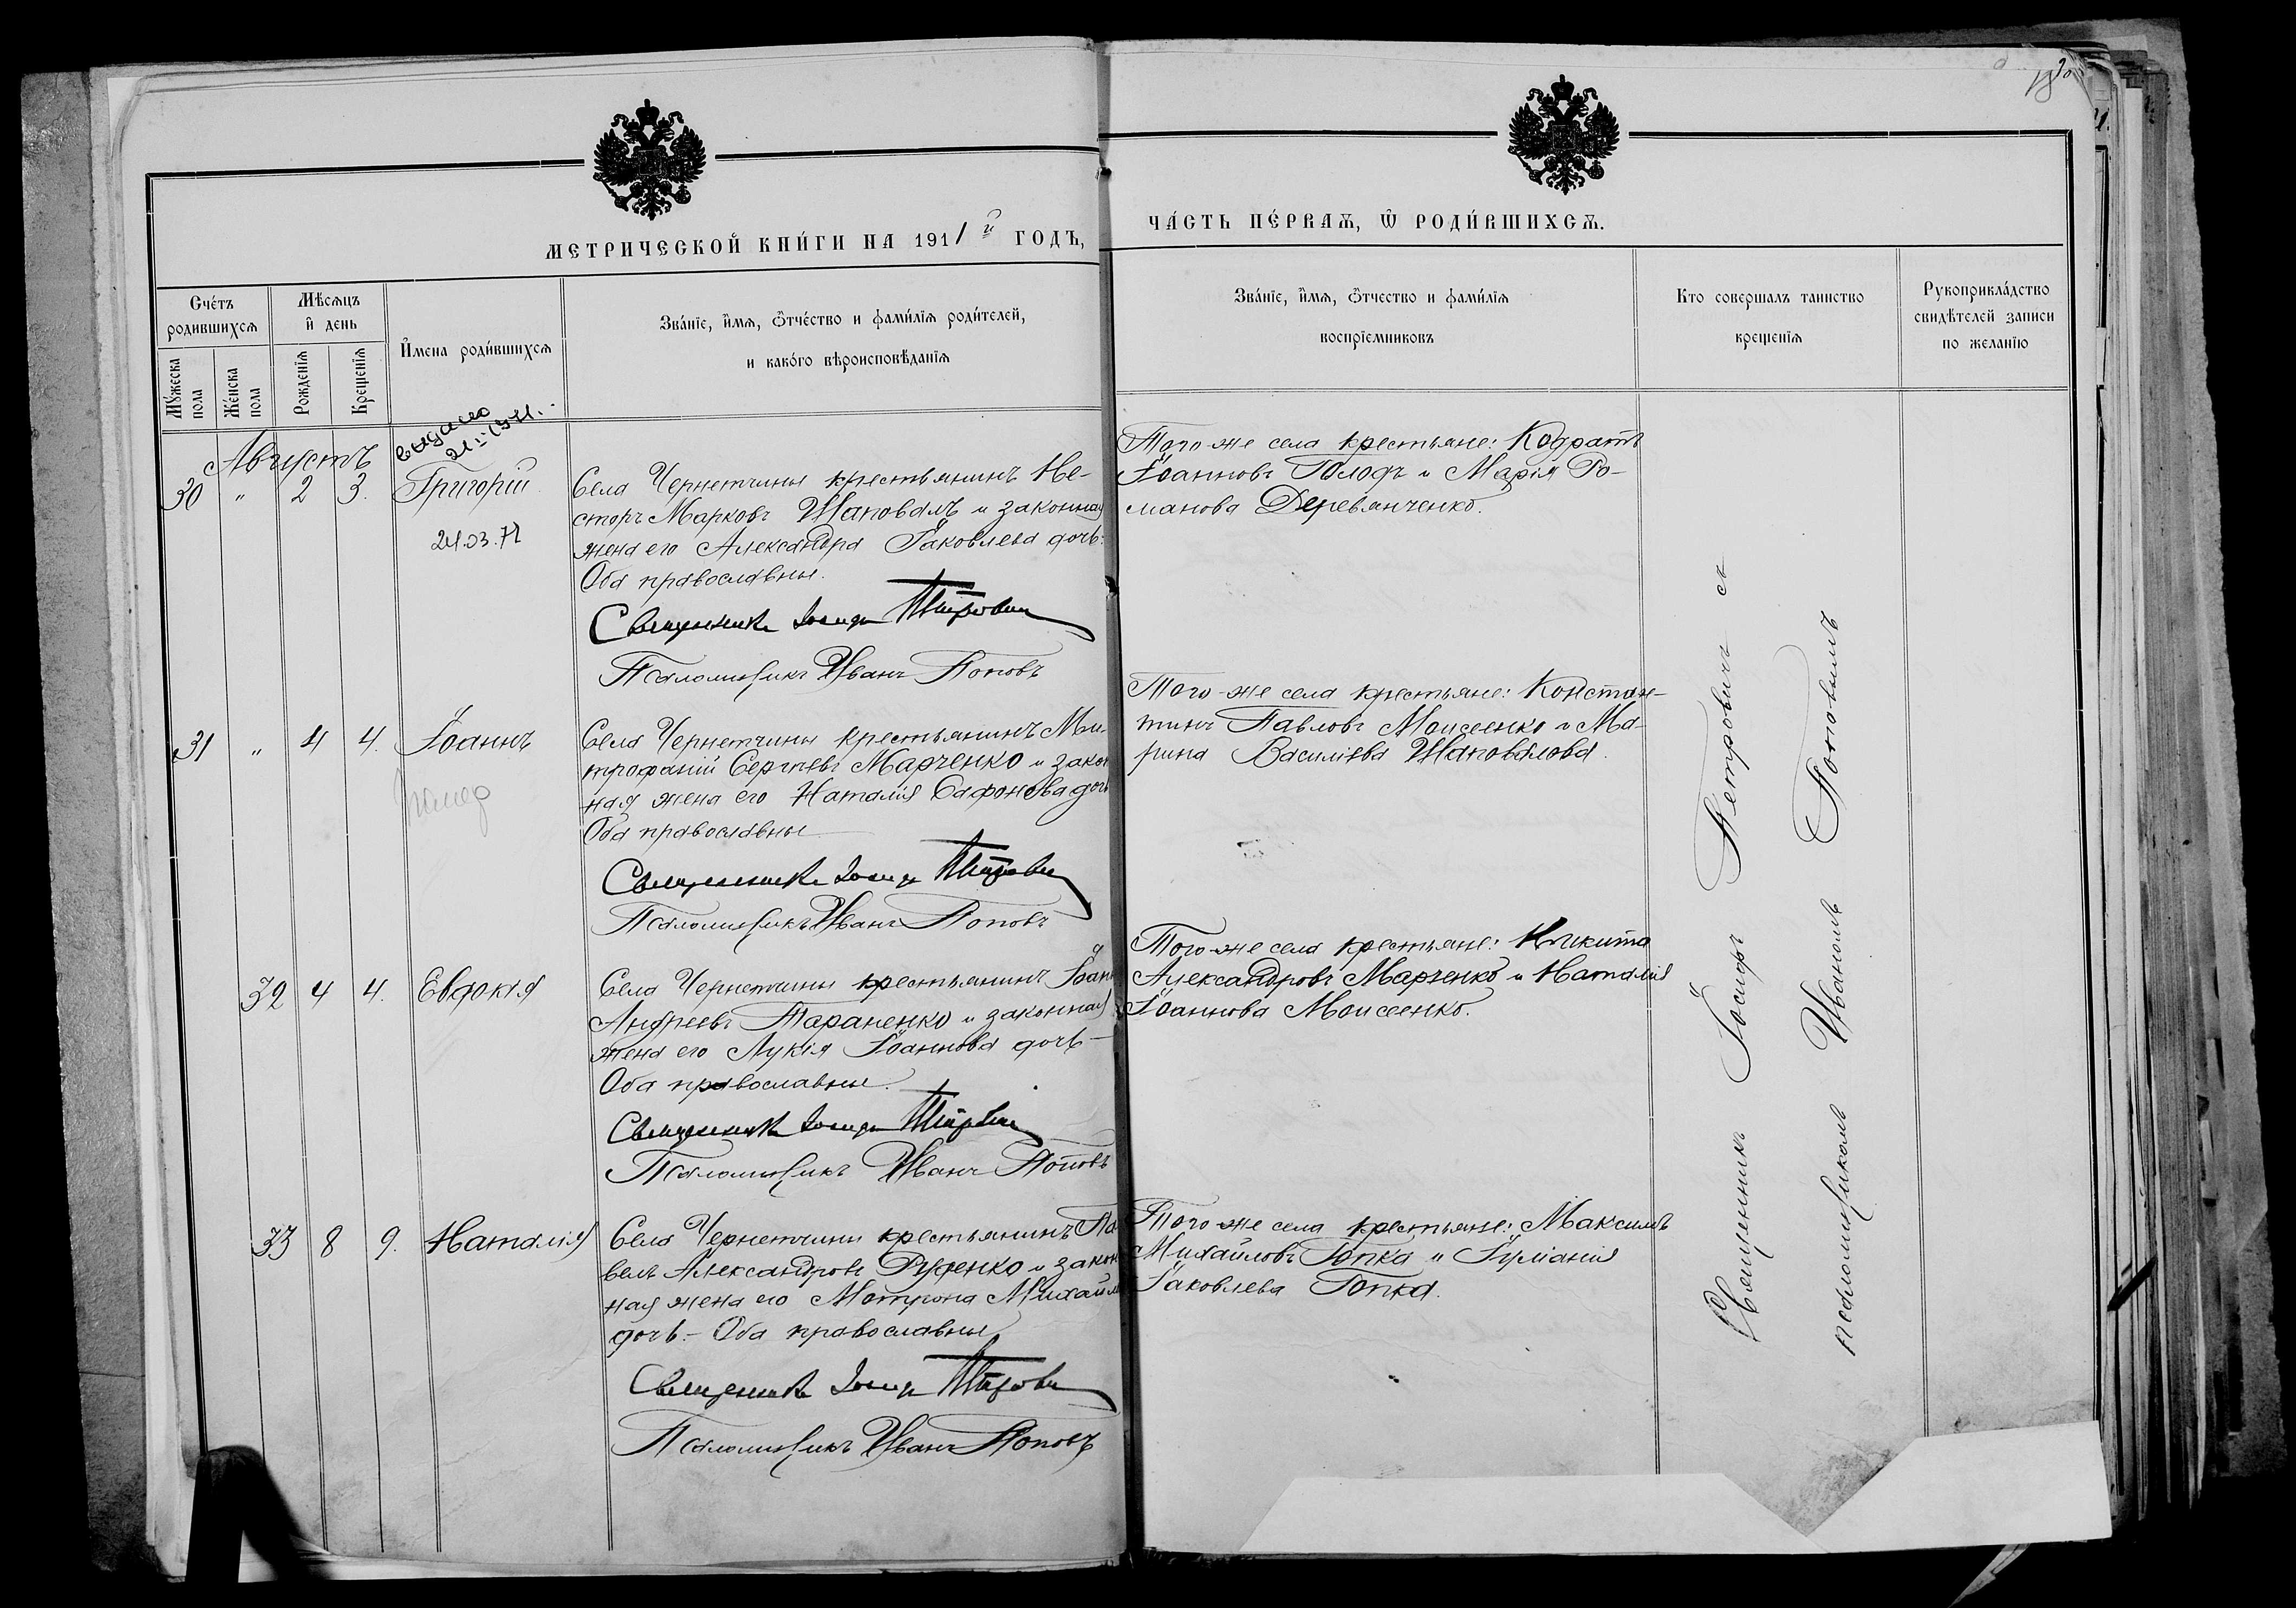 МЕТРИЧЕСКОЙ КНИГИ НА 1911й ГОДЪ,
ЧАСТЬ ПЕРВАЯ, Ѡ РОДИВШИХСЯ.
Счетъ родившихся
Мужеска пола
Женска пола
Мѣсяцъ и день
Рожденія
Крещенія
Имена родившихся
Званіе, имя, ѿчество и фамилія родителей,
и какого вѣроисповѣданія
Званіе, имя, ѿчество и фамилія
воспріемниковъ
Кто совершалъ таинство
крещенія
Рукоприкладство
свидѣтелей записи
по желанію
Августъ
выдано
30 " 2 3. Григорій
24.03.71
Села Чернетчины крестьянинъ Не-
сторъ Марковъ Шаповалъ и законная
жена его Александра Іаковлева дочь.
Оба православные.
Священникъ Іосифъ Петровичъ
Псаломщикъ Иванъ Поповъ
Того-же села крестьяне: Кодратъ
Іоанновъ Голодъ и Марія Ро-
манова Деревянченко.
31 " 4 4. Іоаннъ
Села Чернетчины крестьянинъ Ми-
трофаній Сергіевъ Марченко и закон
ная жена его Наталія Сафонова дочь
Оба православные
Священникъ Іосифъ Петровичъ
Псаломщикъ Иванъ Поповъ
Того-же села крестьяне: Констан-
тинъ Павловъ Моисеенко и Ма-
рина Василіева Шаповалова.
32 4 4. Евдокія
Села Чернетчины крестьянинъ Іоаннъ
Андреевъ Тараненко и законная
жена его Лукія Іоаннова дочь-
Оба православные.
Священникъ Іосифъ Петровичъ
Псаломщикъ Иванъ Поповъ
Того-же села крестьяне: Никита
Александровъ Марченко и Наталія
Іоаннова Моисеенко.
33 8 9. Наталія
Села Чернетчины крестьянинъ Па
велъ Александровъ Руденко и закон
ная жена его Матрона Михайл
дочь.- Оба православные
Священникъ Іосифъ Петровичъ
Псаломщикъ Иванъ Поповъ
Того-же села крестьяне: Максимъ
Михайловъ Гопка и Іуліанія
Іаковлева Гопка.
Священникъ Іосифъ Петровичъ съ
псаломщикомъ Иваномъ Поповымъ